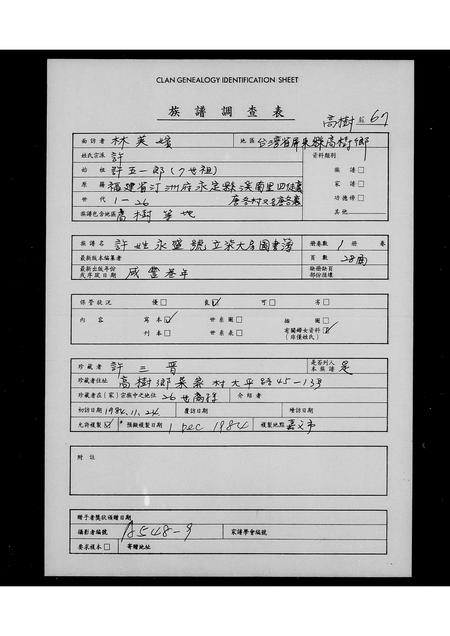 CLAN GENEALOGY IDENTIFICATION SHEET
族譜調查表
高樹 67
面訪者 林美媛 地區 台灣省屏東縣高樹鄉
姓氏宗派 許 資料類別
始祖 許五一郎(7世祖) 族譜□
原籍 福建省汀洲府永定縣溪南里四 家譜□
世代 1-26 功德榜□
族譜包含地區 高樹等地 其他
族譜名 許姓永盛號立 冊卷數 1 卷
最新版本編纂者 頁數 28面
最新出版年份或序跋日期 咸豐叁年 缺冊缺頁部份損壞
保管狀況 優□ 良☑ 可□ 劣□
內容 寫本☑ 世系圖□ 插圖□
刊本□ 世系表□ 有關婦女資料☑(非僅姓氏)
珍藏者 許三晋 是否列入本族譜 是
珍藏者住址 高樹鄉 村太平路45-13号
珍藏者在(家)宗族中之地位 26世裔孫 介紹者
初訪日期 1984.11.24. 覆訪日期 增訪日期
允許複製☑ *預擬複製日期 1 Dec 1984 複製地點 嘉义市
附註
贈予者獎狀頒贈日期
攝影者編號 A548-9 家譜學會編號
要求複本□ 寄贈地址